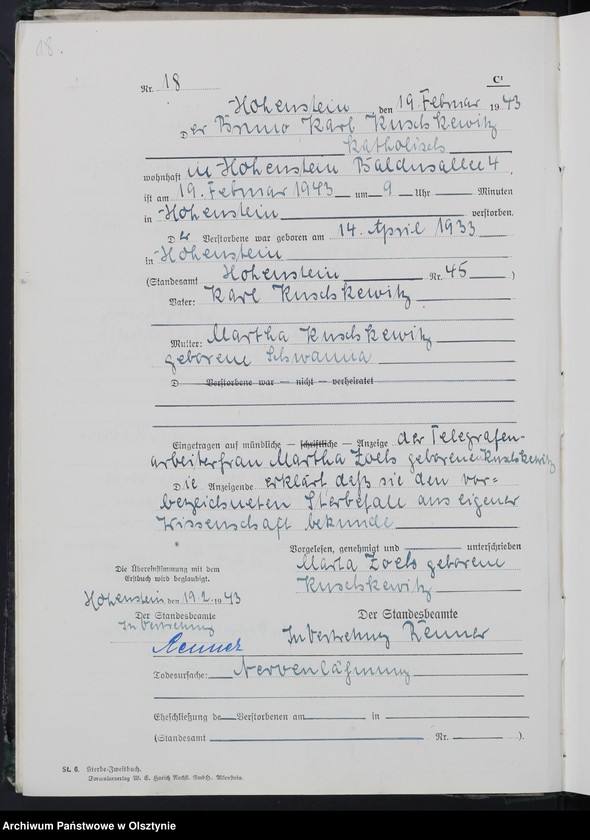 18.
Nr. 18 C¹
Hohenstein, den 19. Februar 1943
Der Bruno Karl Kuschkewitz
katholisch
wohnhaft in Hohenstein Baldusallee 4
ist am 19. Februar 1943 um 9 Uhr Minuten
in Hohenstein verstorben.
Der Verstorbene war geboren am 14. April 1933
in Hohenstein
(Standesamt Hohenstein, Nr. 45)
Vater: Karl Kuschkewitz
Mutter: Martha Kuschkewitz
geborene Schwanna
D Verstorbene war — nicht — verheiratet
Eingetragen auf mündliche — schriftliche — Anzeige der Telegrafen-
arbeiterfrau Martha Zoels geborene Kuschkewitz
Die Anzeigende erklärt daß sie den vor=
bezeichneten Sterbefall aus eigener
Wissenschaft bekunde
Vorgelesen, genehmigt und unterschrieben
Marta Zoels geborene
Kuschkewitz
Die Übereinstimmung mit dem
Erstbuch wird beglaubigt.
Hohenstein, den 19.2.1943
Der Standesbeamte
In Vertretung
Renner
Der Standesbeamte
In Vertretung Renner
Todesursache: Nervenlähmung
Eheschließung de Verstorbenen am in
(Standesamt Nr. ).
St. 6. Sterbe-Zweitbuch.
Formularverlag W. E. Harich Nachf. GmbH. Allenstein.
Archiwum Państwowe w Olsztynie